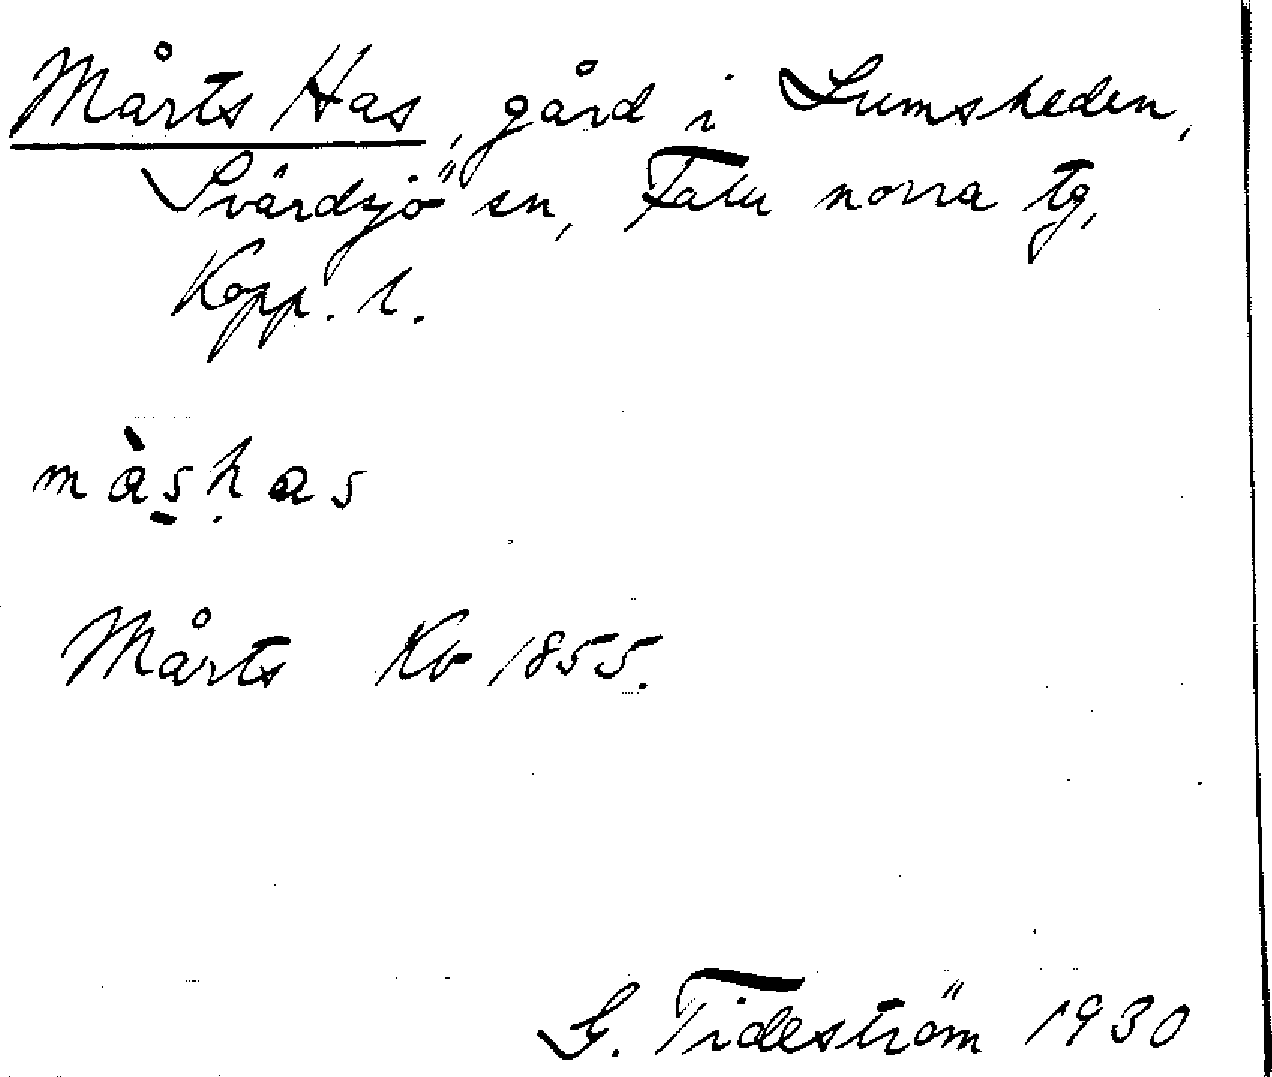 Mårts Has, gård i Lumsheden,
Svärdsjö sn, Falu norra tg,
Kopp. l.
màs̱ḥas
Mårts Kb 1855.
G. Tideström 1930